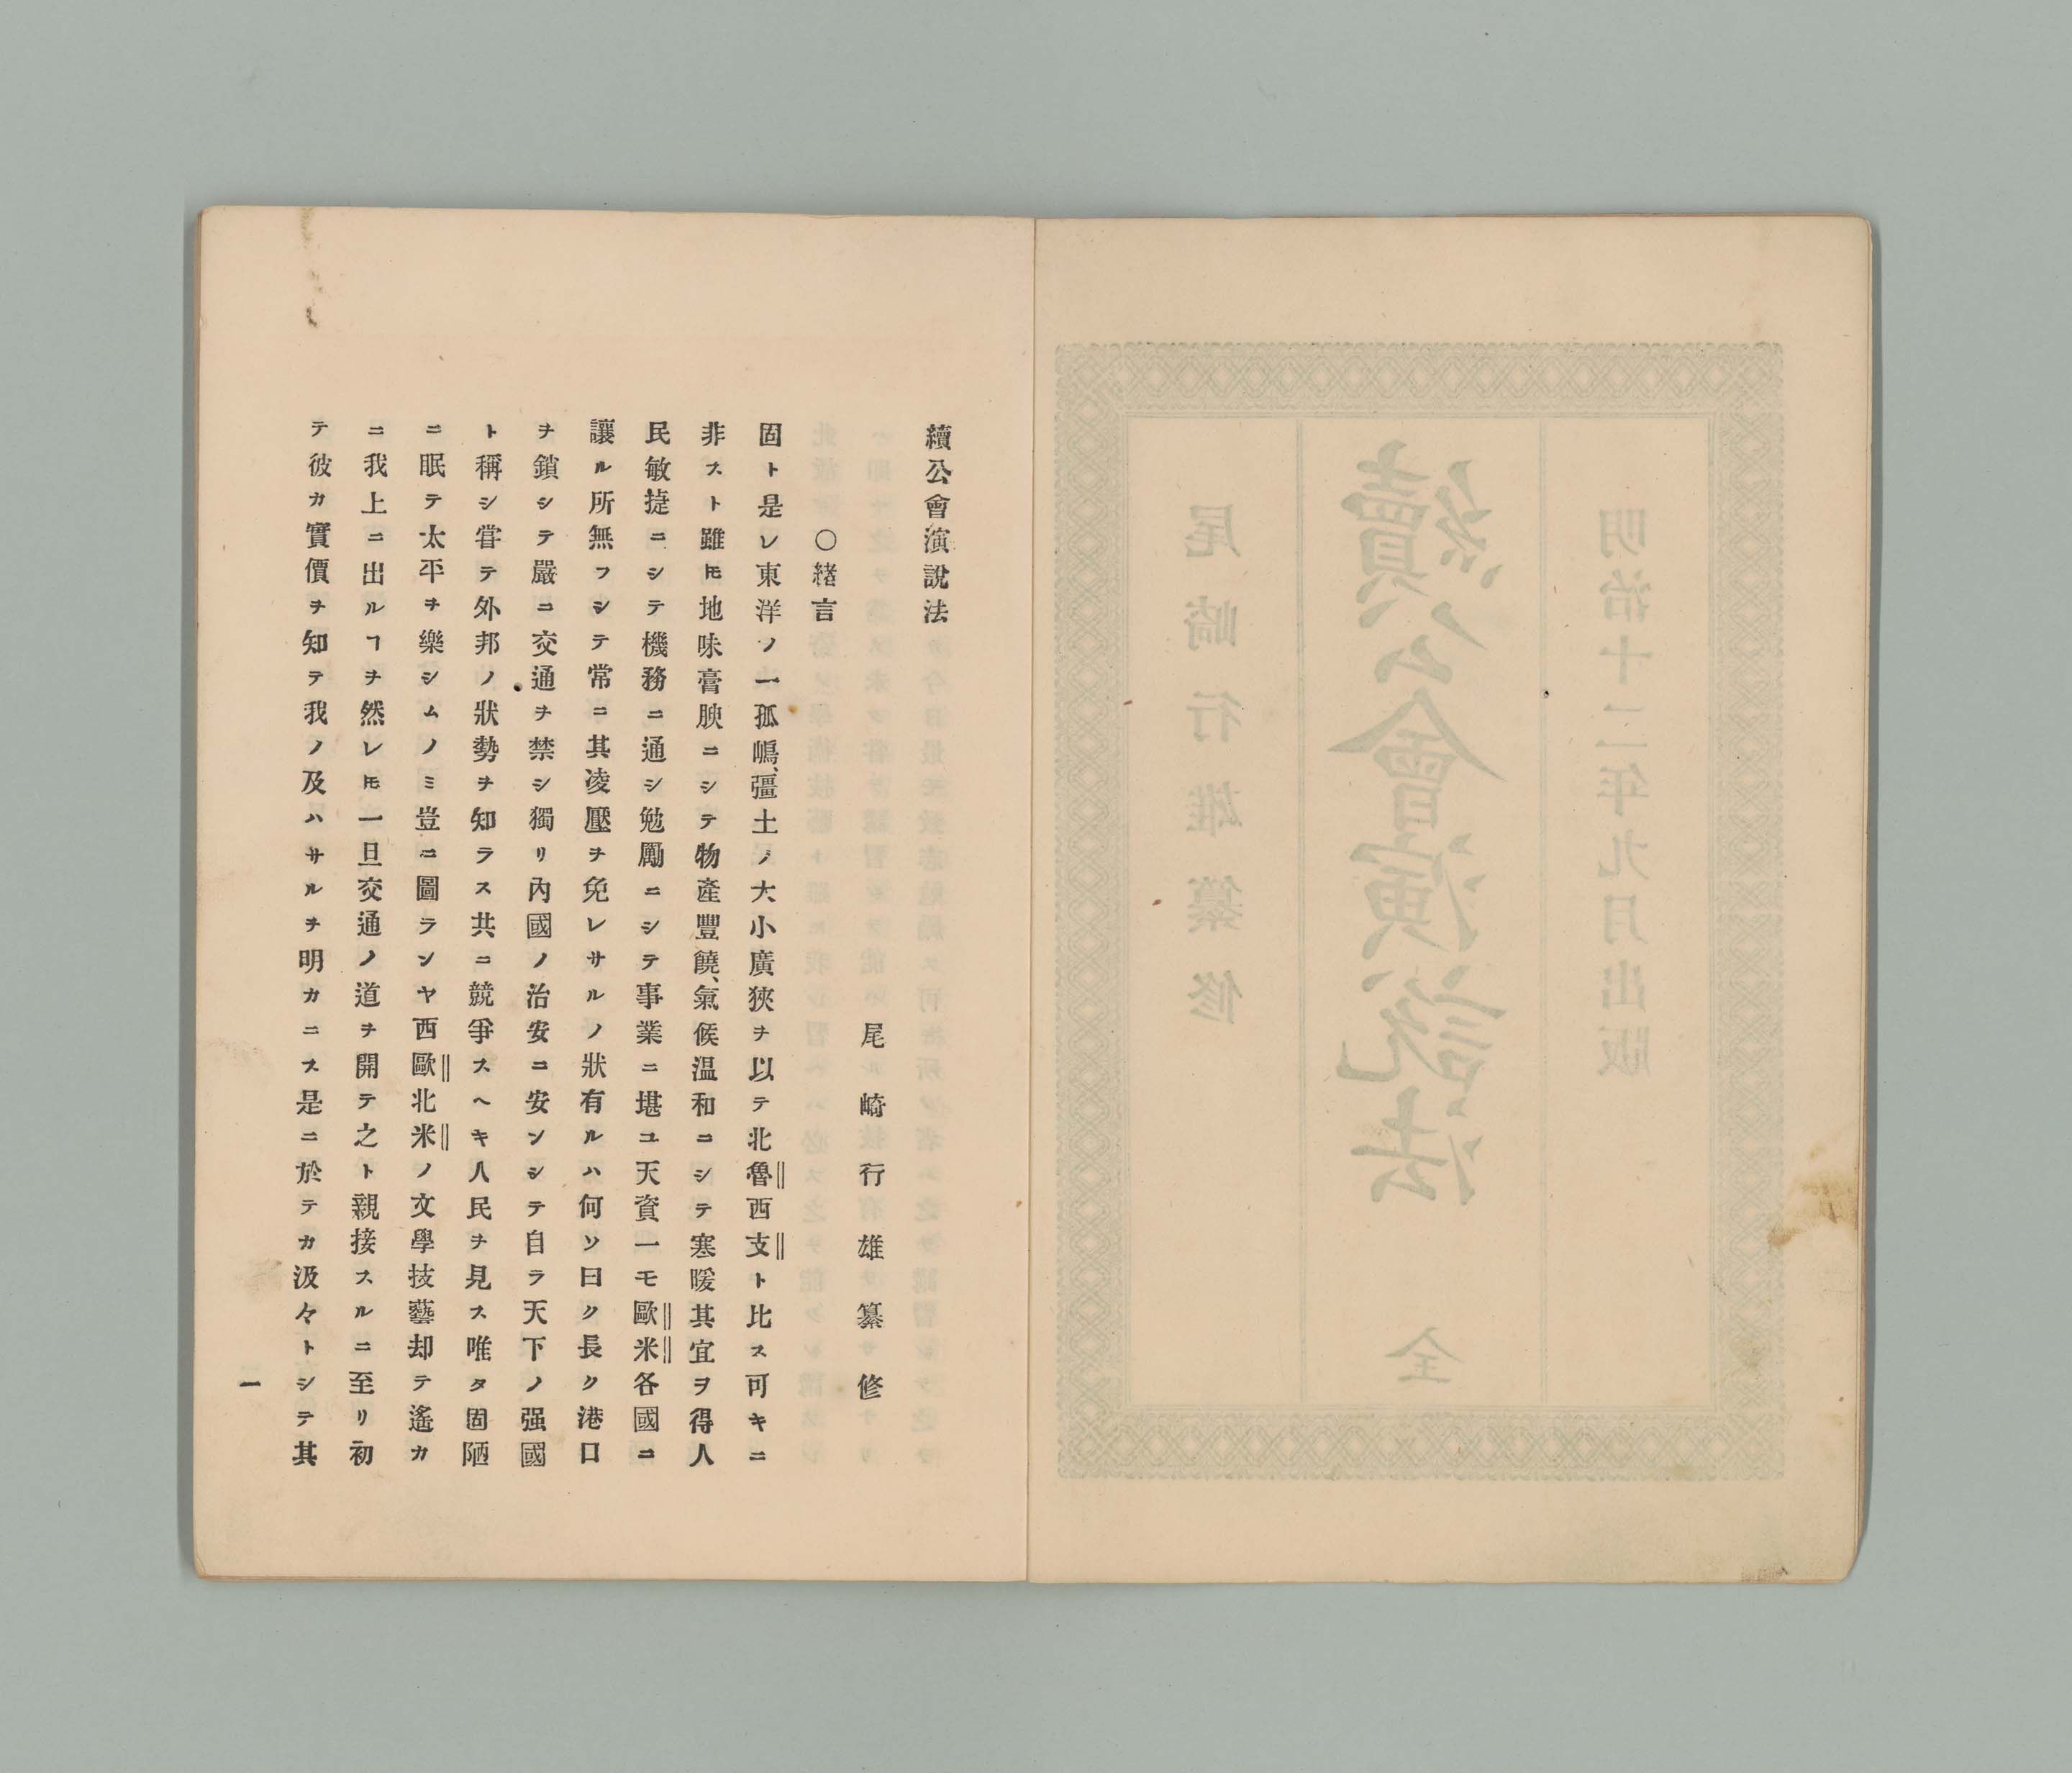 明治十二年九月出版
續公會演説法 全
尾崎行雄纂修
續公會演說法
尾崎行雄纂修
○緒言
固ト是レ東洋ノ一孤嶋、疆土ノ大小廣狹ヲ以テ北魯西支ト比ス可キニ
非スト雖𪜈地味膏腴ニシテ物產豐饒、氣候温和ニシテ寒暖其宜ヲ得人
民敏捷ニシテ機務ニ通シ勉勵ニシテ事業ニ堪ユ天資一モ歐米各國ニ
讓ル所無フシテ常ニ其凌壓ヲ免レサルノ狀有ルハ何ソ曰ク長ク港口
ヲ鎖シテ嚴ニ交通ヲ禁シ獨リ內國ノ治安ニ安ンシテ自ラ天下ノ强國
ト稱シ嘗テ外邦ノ狀勢ヲ知ラス共ニ競爭スヘキ人民ヲ見ス唯タ固陋
ニ眠テ太平ヲ樂シムノミ豈ニ圖ランヤ西歐北米ノ文學技藝却テ遙カ
ニ我上ニ出ルヿヲ然レ𪜈一旦交通ノ道ヲ開テ之ト親接スルニ至リ初
テ彼カ實價ヲ知テ我ノ及ハサルヲ明カニス是ニ於テカ汲々トシテ其
一